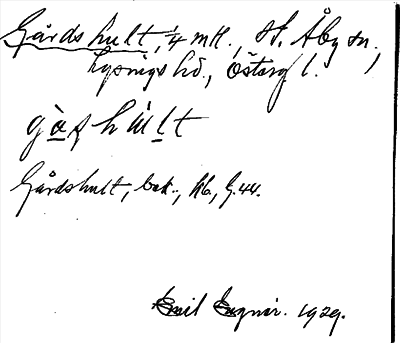 Gårdshult, 1/4 mtl, St. Åby sn,
Lysings hd., Östergl.
gàʂhult
Gårdshult, bek., Kb, G. 44.
Emil 1929.